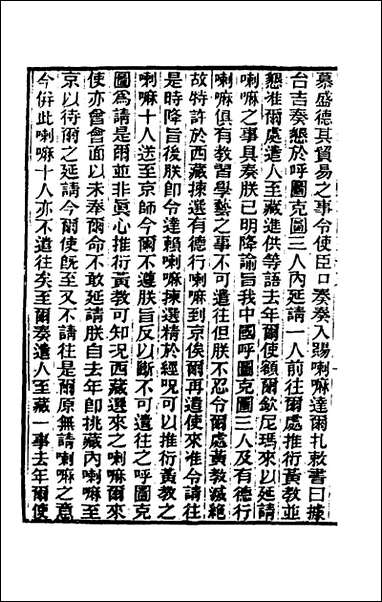 慕盛德其貿易之事令使臣口奏奏入賜喇嘛達爾扎敕書曰據
台吉奏懇於呼圖克圖三人內延請一人前往爾處推衍黃教並
懇准爾處遣人至藏進供等語去年爾使額爾欽尼瑪來以延請
喇嘛之事具奏朕已明降諭旨我中國呼圖克圖三人及有德行
喇嘛俱有教習學藝之事不可遣往但朕不忍令爾處黃教滅絕
故特許於西藏揀選有德行喇嘛到京俟爾再遣使來准令請往
是時降旨後朕即令達賴喇嘛揀選精於經呪可以推衍黃教之
喇嘛十人送至京師今爾不遵朕旨反以斷不可遣往之呼圖克
圖為請是爾並非眞心推衍黃教可知况西藏選來之喇嘛爾來
使亦曾會面以未奉爾命不敢延請朕自去年即挑藏內喇嘛至
京以待爾之延請今爾使旣至又不請往是爾原無請喇嘛之意
今倂此喇嘛十人亦不遣往矣至爾奏遣人至藏一事去年爾使